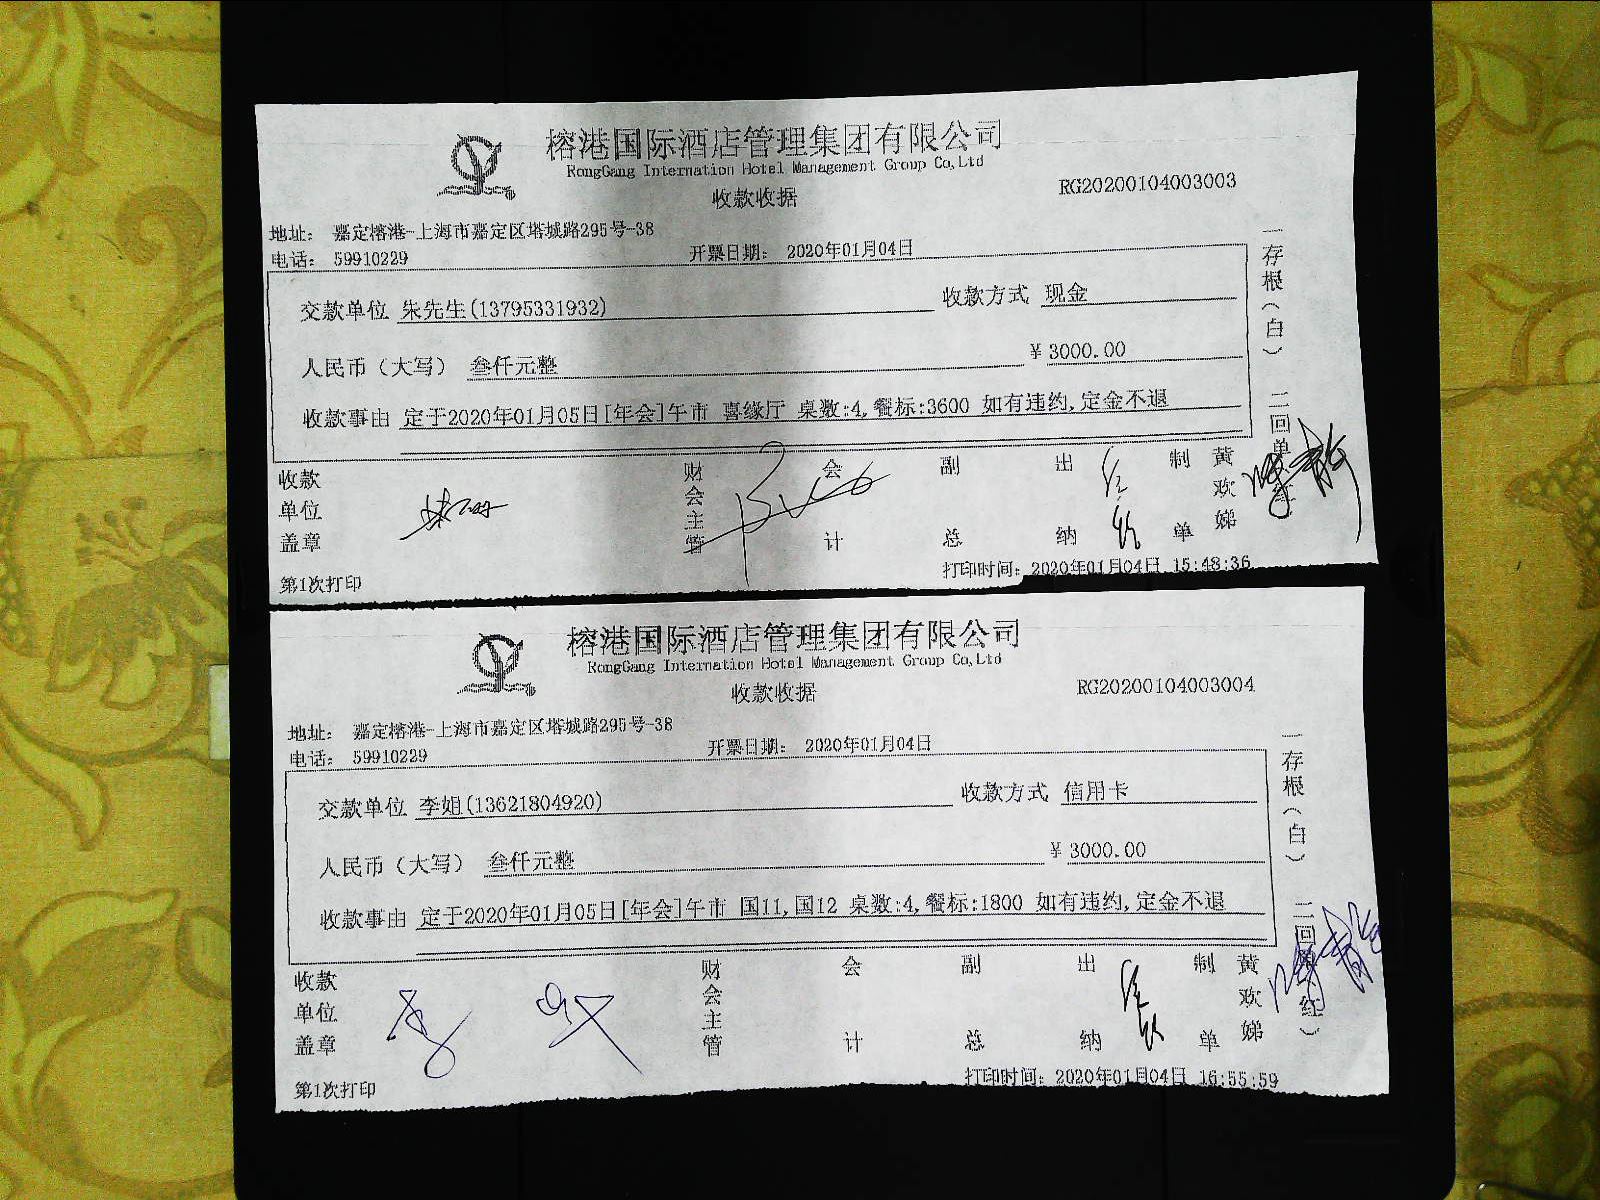 榕港国际酒店管理集团有限公司
RongGang Internation Hotel Management Group Co,Ltd
收款收据
RG20200104003003
地址： 嘉定榕港-上海市嘉定区塔城路295号-38
电话： 59910229 开票日期： 2020年01月04日
交款单位 朱先生(13795331932) 收款方式 现金
人民币（大写） 叁仟元整 ¥ 3000.00
收款事由 定于2020年01月05日[年会]午市 喜缘厅 桌数:4,餐标:3600 如有违约,定金不退
收款单位盖章 财会主管 会计 副总 出纳 制单 黄欢娣
一存根（白） 二回单
第1次打印 打印时间：2020年01月04日 15:48:36
榕港国际酒店管理集团有限公司
RongGang Internation Hotel Management Group Co,Ltd
收款收据
RG20200104003004
地址： 嘉定榕港-上海市嘉定区塔城路295号-38
电话： 59910229 开票日期： 2020年01月04日
交款单位 李姐(13621804920) 收款方式 信用卡
人民币（大写） 叁仟元整 ¥ 3000.00
收款事由 定于2020年01月05日[年会]午市 国11,国12 桌数:4,餐标:1800 如有违约,定金不退
收款单位盖章 财会主管 会计 副总 出纳 制单 黄欢娣
一存根（白） 二回 红）
第1次打印 打印时间：2020年01月04日 16:55:59